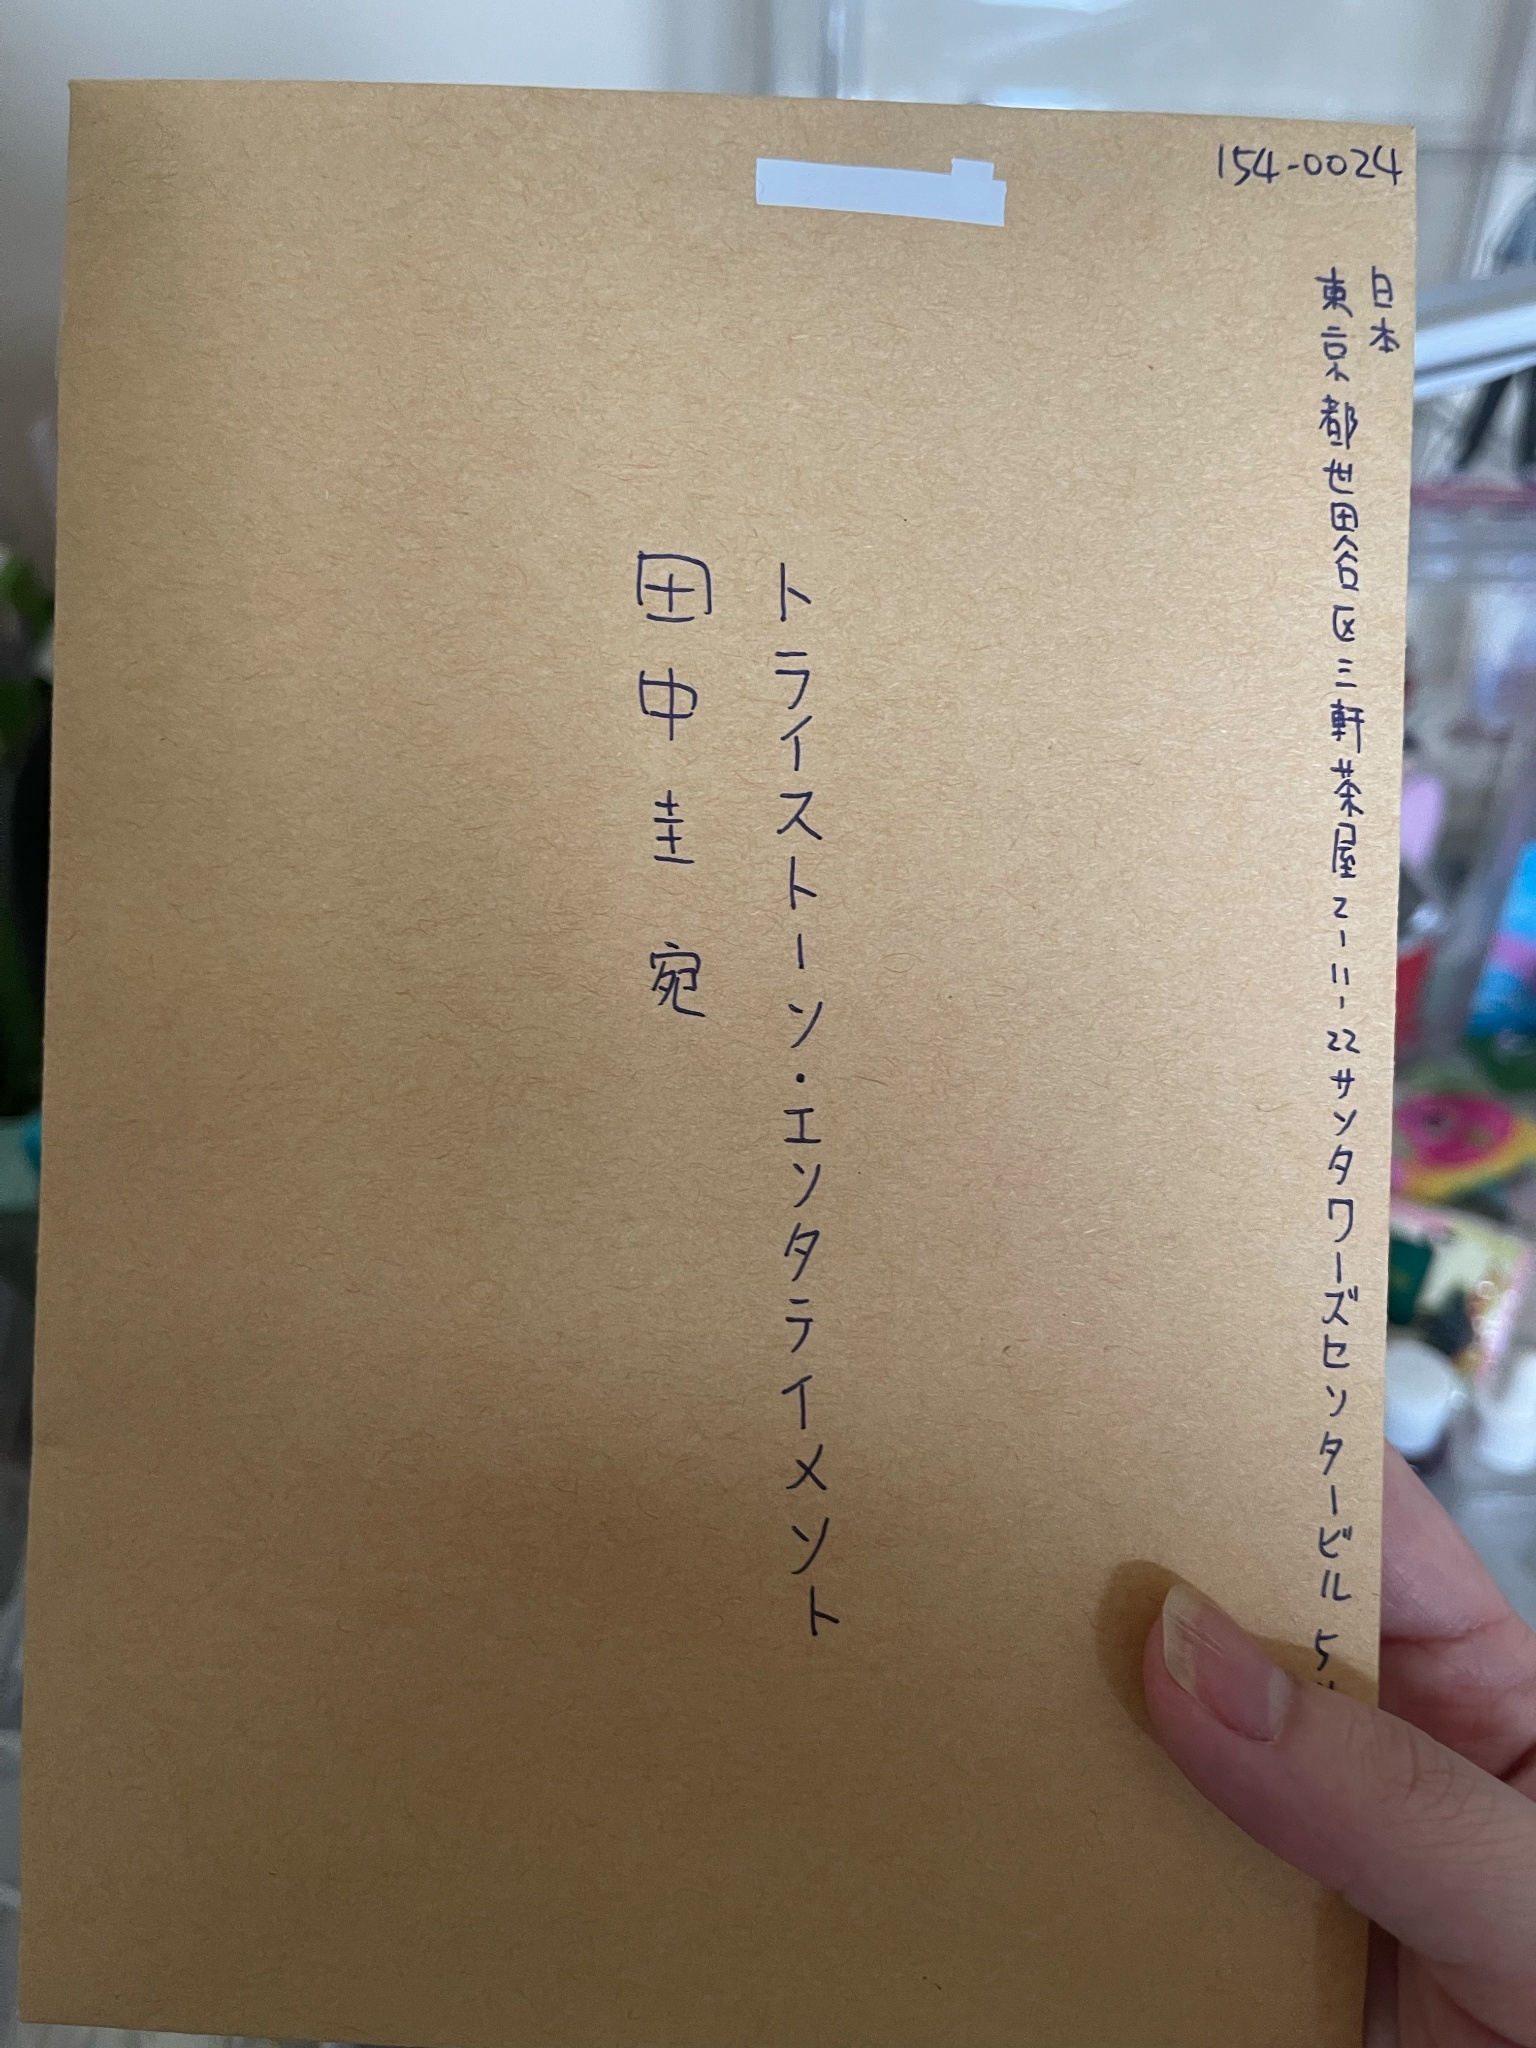 154-0024
日本
東京都世田谷区三軒茶屋2-11-22サンタワーズセンタービル5
トライストーン・エンタテイメント
田中圭 宛